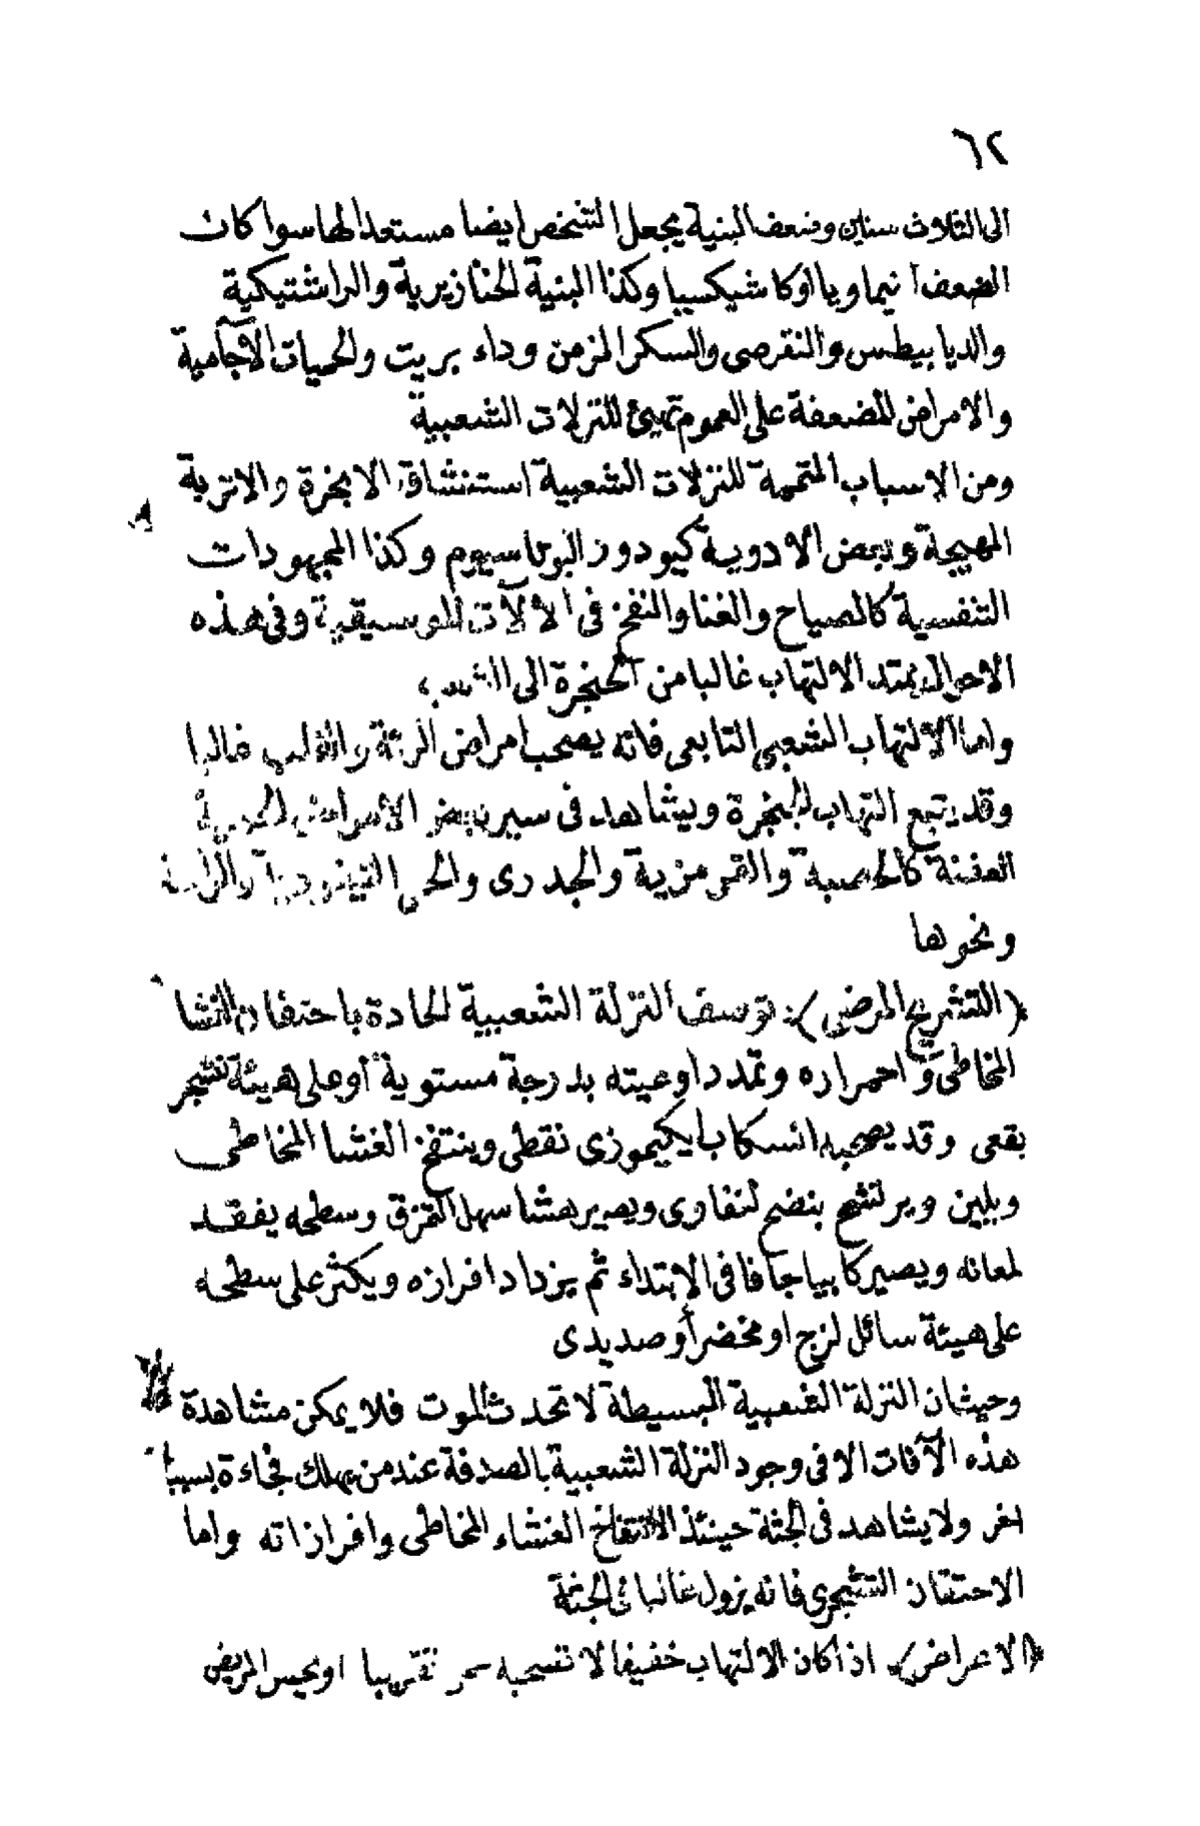 ٦٢
الى الثلاث سنين وضعف البنية يجعل الشخص ايضا مستعدا لها سوا كان
الضعف انيماويا او كاشيكسيا وكذا البنية الخنازيرية والراشتيكية
والديابيطس والنقرصى والسكر المزمن وداء بريت والحميات الآجامية
والامراض المضعفة على العموم تهيئ للنزلات الشعبية
ومن الاسباب المتممة للنزلات الشعبية استنشاق الابخرة والاتربة
المهيجة وبعض الادوية كيودور البوتاسيوم وكذا المجهودات
التنفسية كالصياح والغنا والنفخ فى الآلات الموسيقية وفى هذه
الاحوال يمتد الالتهاب غالبا من الحنجرة الى الشعب
واما الالتهاب الشعبى التابعى فانه يصحب امراض الرئة والقلب غالبا
وقد يتبع التهاب الحنجرة ويشاهد فى سير بعض الامراض
العفنة كالحصبة والقرمزية والجدرى والحمى التيفودية
ونحوها
(التشريح المرضى) توصف النزلة الشعبية الحادة باحتقان الغشا
المخاطى واحمراره وتمدد اوعيته بدرجة مستوية أو على هيئة تشجر
بقعى وقد يصحبه انسكاب ايكيموزى نقطى وينتفخ الغشا المخاطى
ويلين ويرتشح بنضح لنفاوى ويصير هشا سهل التمزق وسطحه يفقد
لمعانه ويصير كابيا جافا فى الابتداء ثم يزداد افرازه ويكثر على سطحه
على هيئة سائل لزج او مخضر أو صديدى
وحيث ان النزلة الشعبية البسيطة لا تحدث الموت فلا يمكن مشاهدة
هذه الآفات الا فى وجود النزلة الشعبية بالصدفة عند من يهلك فجاءة بسبب
اخر ولا يشاهد فى الجثة حينئذ الا انتفاخ الغشاء المخاطى وافرازاته واما
الاحتقان التشجرى فانه يزول غالبا فى الجثة
(الاعراض) اذا كان الالتهاب خفيفا لا تصحبه حمى تقريبا او يحس المريض